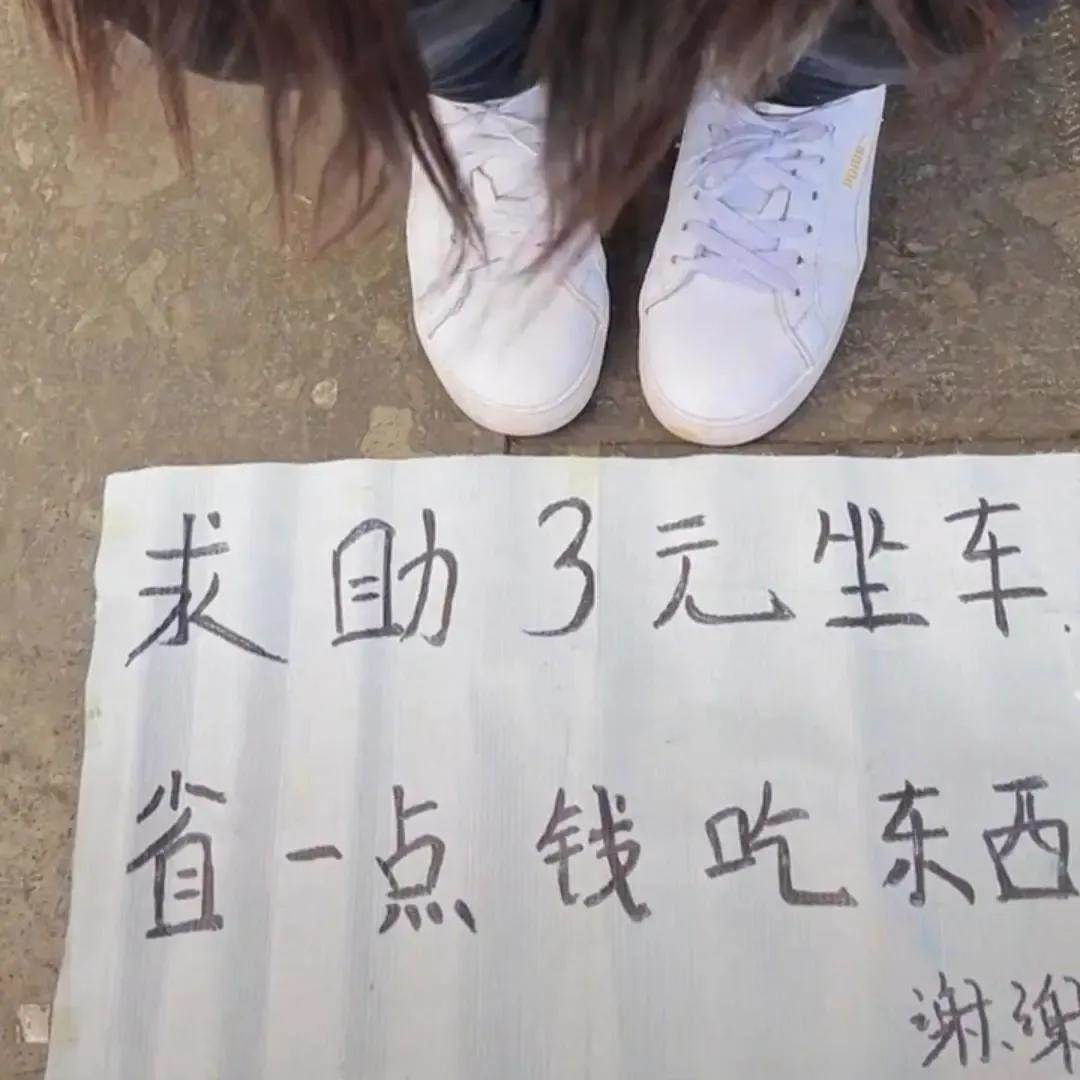 求助3元坐车.
省一点钱吃东西
谢谢